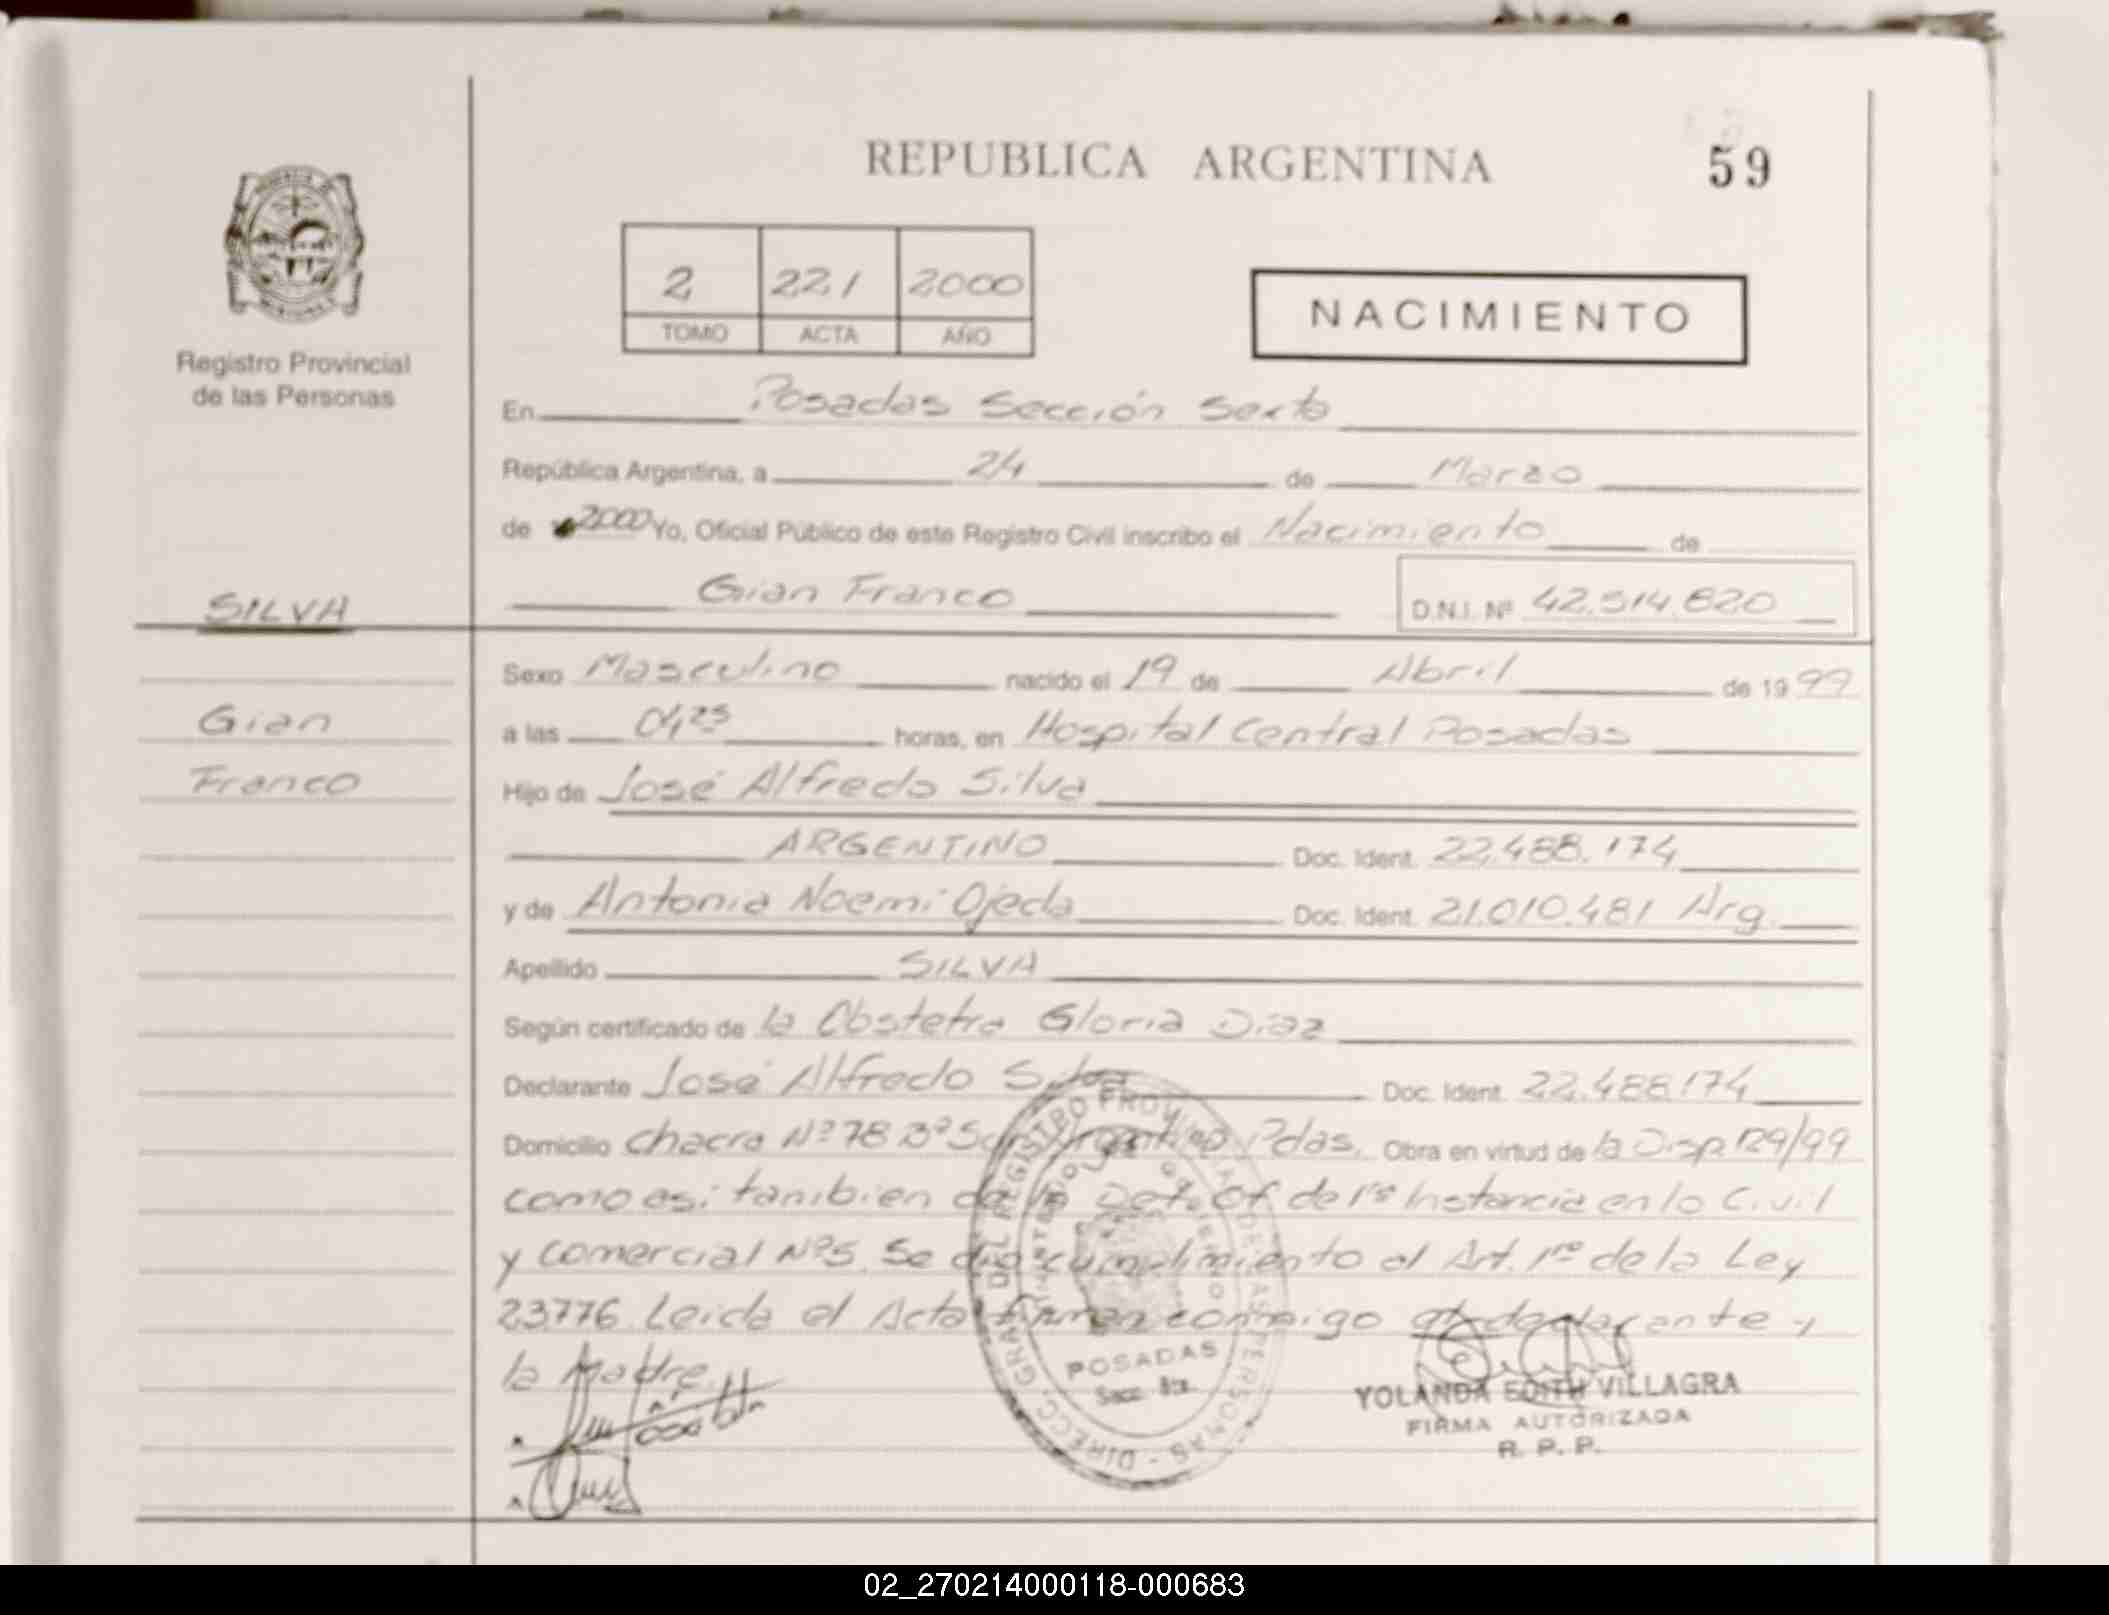 REPUBLICA ARGENTINA
59
2 221 2000
TOMO ACTA AÑO
NACIMIENTO
Registro Provincial
de las Personas
En Posadas Sección Sexta
República Argentina, a 24 de Marzo
de 2000 Yo, Oficial Público de este Registro Civil inscribo el Nacimiento de
SILVA
Gian Franco
D.N.I. Nº 42.514.820
Sexo Masculino nacido el 19 de Abril de 1999
Gian
a las horas, en Hospital Central Posadas
Franco
Hijo de José Alfredo Silva
ARGENTINO Doc. Ident. 22.488.174
y de Antonia Noemi Ojeda Doc. Ident. 21.010.481 Arg.
Apellido SILVA
Según certificado de la Obstetra Gloria Diaz
Declarante José Alfredo Silva Doc. Ident. 22.488.174
Domicilio Chacra Nº 78 Bº Sur Argentino Pdas. Obra en virtud de la Disp. 129/99
como asi tambien de la Def. Of. de 1ra Instancia en lo Civil
y Comercial Nº5. Se dio cumplimiento al Art. 1ro de la Ley
23776. Leida el Acta firman conmigo el declarante y
la Madre.
DIRECC. GRAL. DEL REGISTRO PROVINCIAL DE LAS PERSONAS
POSADAS
YOLANDA EDITH VILLAGRA
FIRMA AUTORIZADA
R. P. P.
02_270214000118-000683